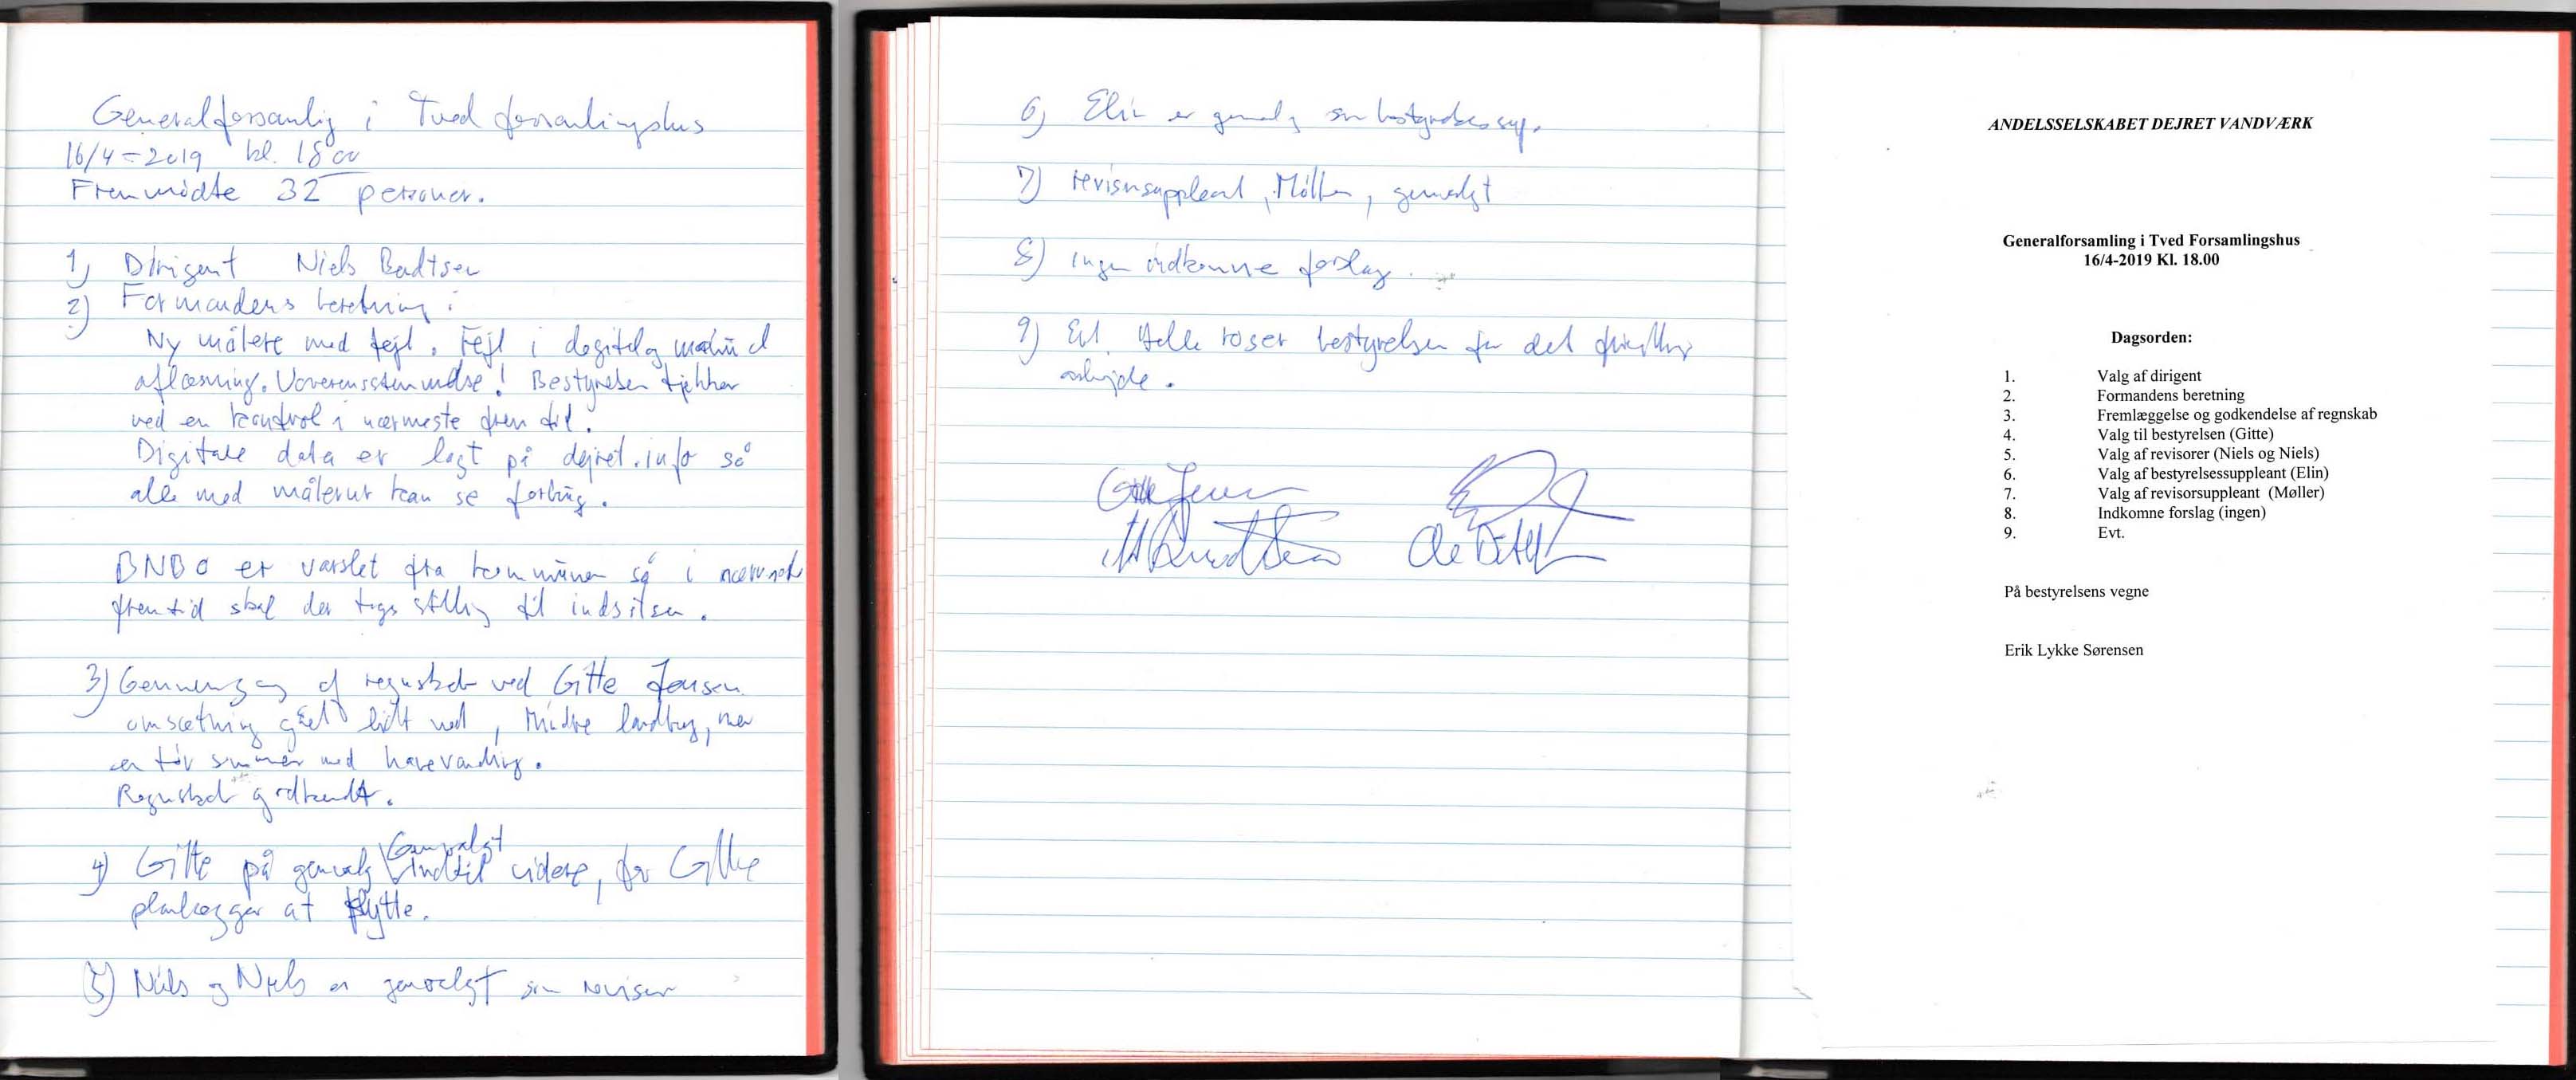 Generalforsamlig i Tved forsamlingshus
16/4-2019 kl. 18 00
Fremmødte 32 personer.
1) Dirigent Niels
2) Formandens beretning :
Ny målere med fejl. Fejl i
aflæsning. Uoverensstemmelse! Bestyrelsen tjekker
ved en kontrol i nærmeste frem tid.
Digitale data er lagt på dejret.info så
alle med målerur kan se forbrug.
BNBO er varslet fra kommunen så i nærmeste
fremtid skal der tages stilling til indsatsen.
3) Gennemgang af regnskab ved Gitte Jensen
omsætning gået lidt ned, mindre landbrug, men
en tør sommer med havevanding.
Regnskab godkendt.
4) Gitte på genvalg Genvalgt indtil videre, for Gitte
planlægger at flytte.
5) Niels og Niels er genvalgt som revisor
6) Elin er genvalg som bestyrelsessup.
7) revisorsuppleant, Møller, genvalgt
8) Ingen indkomne forslag.
9) Evt. Helle roser bestyrelsen for det frivillige
arbejde.
Gitte Jensen
ANDELSSELSKABET DEJRET VANDVÆRK
Generalforsamling i Tved Forsamlingshus
16/4-2019 Kl. 18.00
Dagsorden:
1. Valg af dirigent
2. Formandens beretning
3. Fremlæggelse og godkendelse af regnskab
4. Valg til bestyrelsen (Gitte)
5. Valg af revisorer (Niels og Niels)
6. Valg af bestyrelsessuppleant (Elin)
7. Valg af revisorsuppleant (Møller)
8. Indkomne forslag (ingen)
9. Evt.
På bestyrelsens vegne
Erik Lykke Sørensen